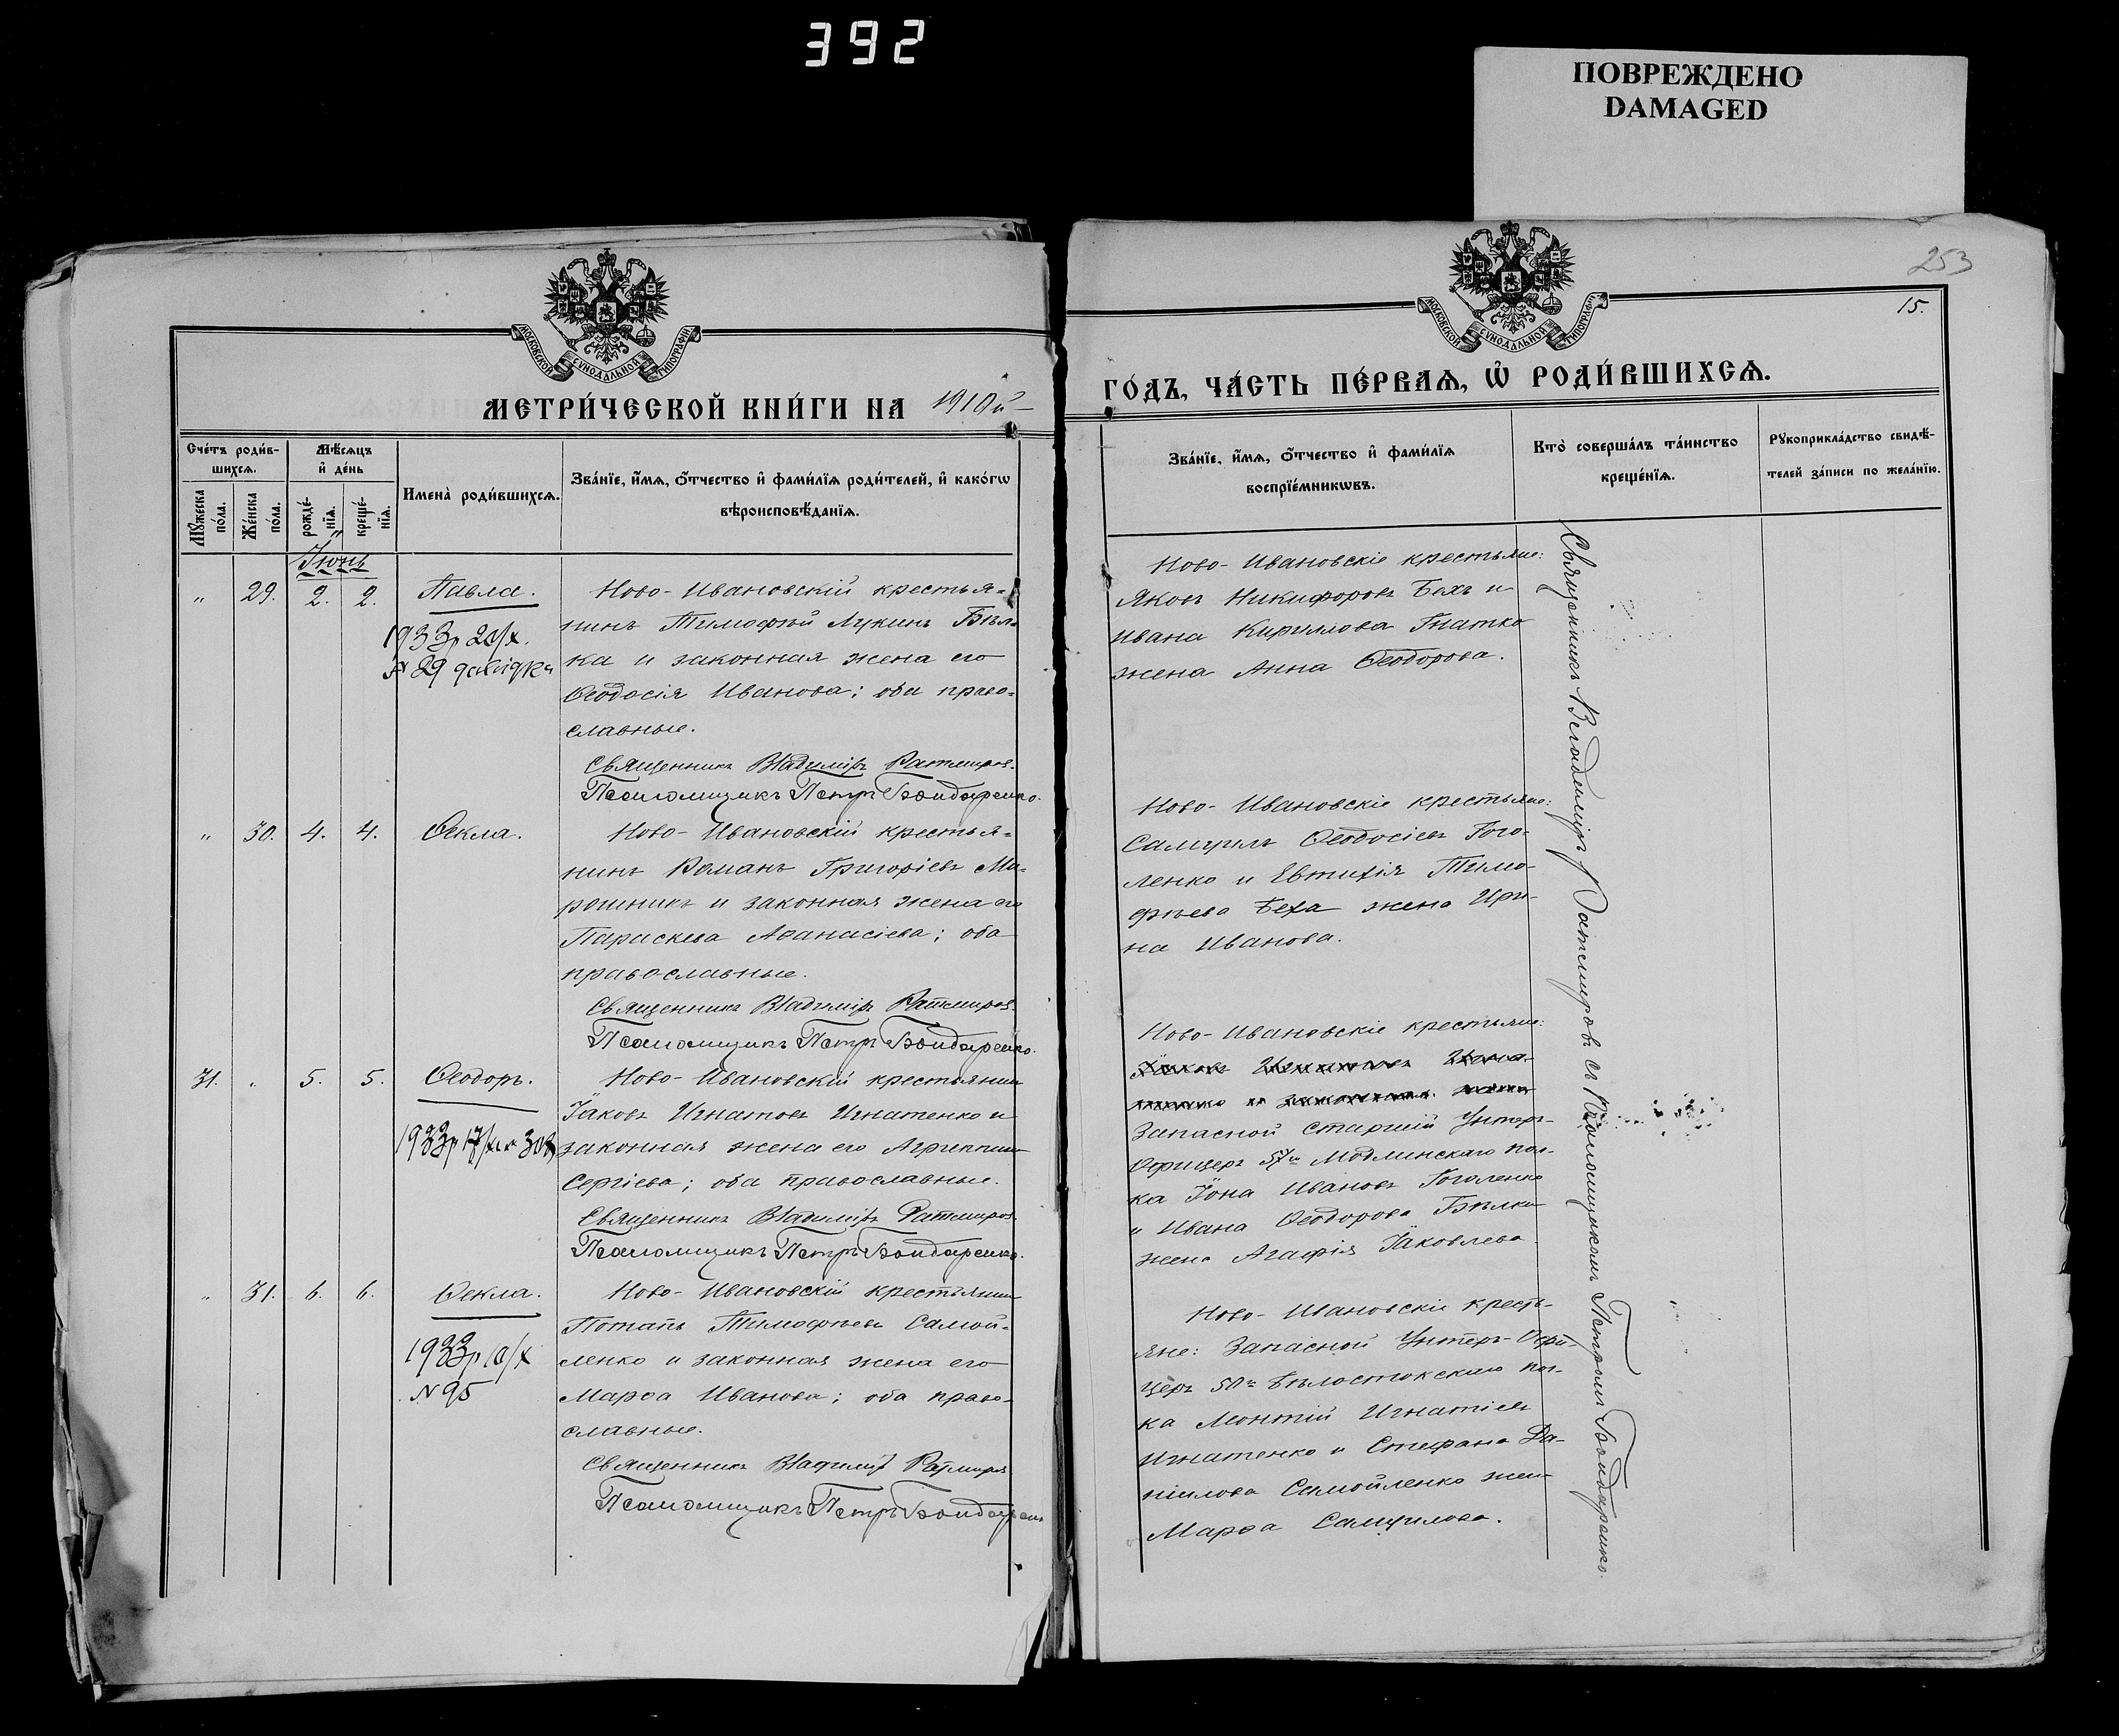 392
ПОВРЕЖДЕНО
DAMAGED
253
15.
МОСКОВСКОЙ СѴНОДАЛЬНОЙ ТИПОГРАФІИ
МОСКОВСКОЙ СѴНОДАЛЬНОЙ ТИПОГРАФІИ
МЕТРИ́ЧЕСКОЙ КНИ́ГИ НА 1910й
ГО́ДЪ, ЧА́СТЬ ПЕ́РВАѦ, Ѽ РОДИ́ВШИХСѦ.
Сче́тъ роди́в-
шихсѧ.
Мꙋ́жеска
по́ла.
Же́нска
по́ла.
Мѣ́сѧцъ
и҆ де́нь
рожде́-
нїѧ.
креще́-
нїѧ.
Имена̀ роди́вшихсѧ.
Зва́нїе, и҆́мѧ, ѻ҆́тчество и҆ фами́лїѧ роди́телей, и҆ како́гѡ
вѣроисповѣ́данїѧ.
Зва́нїе, и҆́мѧ, ѻ҆́тчество и҆ фами́лїѧ
воспрїе́мникѡвъ.
Кто̀ соверша́лъ та́инство
креще́нїѧ.
Рꙋкоприкла́дство свидѣ́-
телей за́писи по жела́нїю.
Іюнь
„ 29. 2. 2. Павла.
1933р 20/х.
№ 29 довідка
Ново-Ивановскій крестья=
нинъ Тимофѣй Лукинъ Бѣл=
ка и законная жена его
Ѳеодосія Иванова; оба право=
славные.
Священникъ Владиміръ Ратмировъ.
Псаломщикъ Петръ Бондаренко.
Ново-Ивановскіе крестьяне:
Яковъ Никифоровъ Бехъ и
Ивана Кириллова Гнатко
жена Анна Ѳеодорова.
„ 30. 4. 4. Ѳекла.
Ново-Ивановскій крестья=
нинъ Романъ Григоріевъ Ми-
рошникъ и законная жена его
Параскева Аѳанасіева; оба
православные.
Священникъ Владиміръ Ратмировъ.
Псаломщикъ Петръ Бондаренко.
Ново-Ивановскіе крестьяне:
Самуилъ Ѳеодосіевъ Гого-
ленко и Евтихія Тимо-
фѣева Беха жена Ири-
на Иванова.
31. „ 5. 5. Ѳеодоръ.
1933р 17/х
Ново-Ивановскій крестьянинъ
Іаковъ Игнатовъ Игнатенко и
законная жена его Агриппина
Сергіева; оба православные.
Священникъ Владиміръ Ратмировъ.
Псаломщикъ Петръ Бондаренко.
Ново-Ивановскіе крестьяне:
Запасной старшій Унтеръ-
Офицеръ 57го Модлинскаго пол-
ка Іона Ивановъ Гоголенко
и Ивана Ѳеодорова Бѣлки
жена Агафія Іаковлева.
„ 31. 6. 6. Ѳекла.
1933р 10/х
№ 95
Ново-Ивановскій крестьянинъ
Потапъ Тимофѣевъ Самой-
ленко и законная жена его
Марѳа Иванова; оба право-
славные.
Священникъ Владиміръ Ратмировъ
Псаломщикъ Петръ Бондаренко
Ново-Ивановскіе кресть-
яне: Запасной Унтеръ-Офи-
церъ 50го Бѣлостокскаго пол-
ка Монтій Игнатіевъ
Игнатенко и Стефана Да-
ніилова Самойленко жена
Марѳа Самуилова.
Священникъ Владиміръ Ратмировъ съ Псаломщикомъ Петромъ Бондаренко.